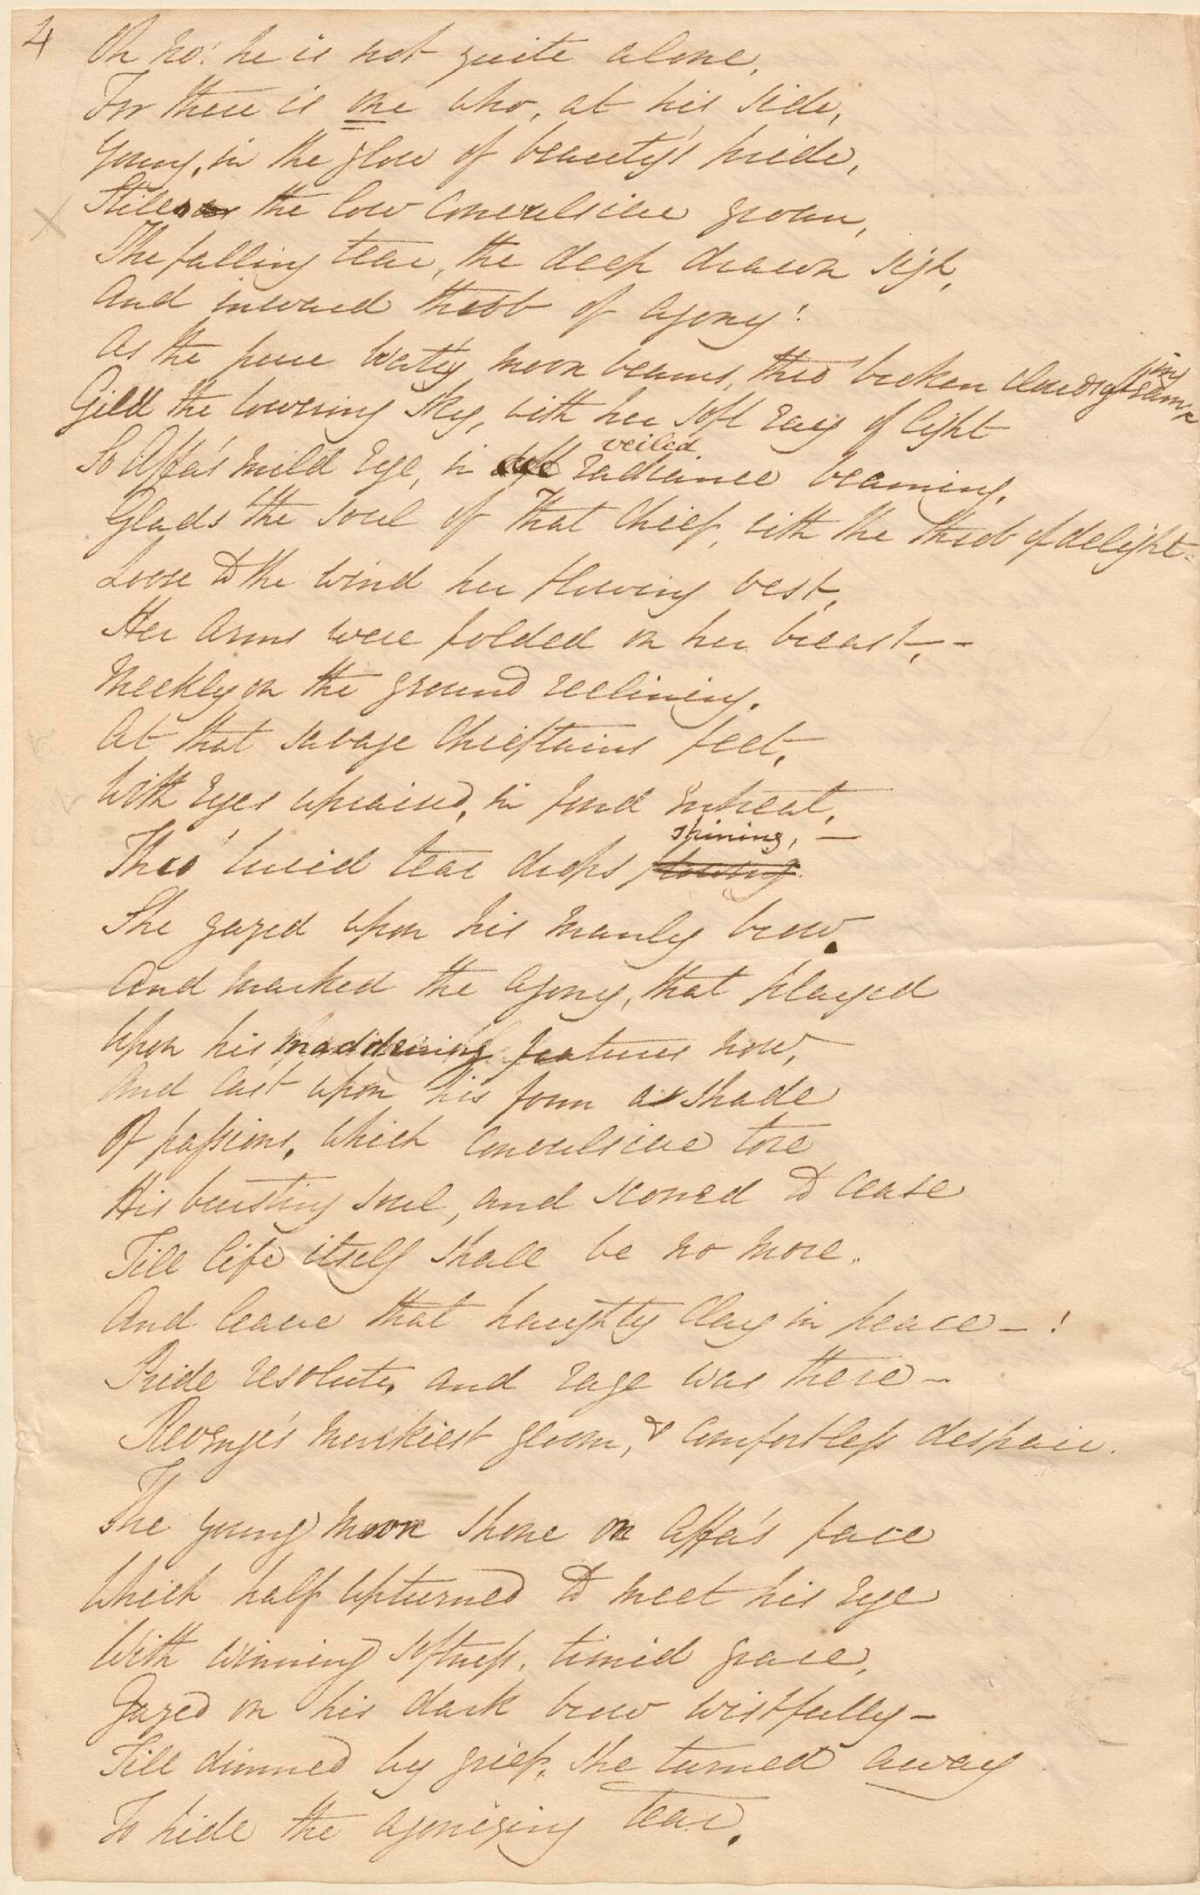 4
Oh no! he is not quite alone,
For there is one who, at his side,
Young, in the glow of beauty's pride,
Stills the low convulsive groan,
The falling tear, the deep drawn sigh,
And inward throb of agony!
As the pure watry moon beams, thro' broken clouds streaming
Gild the lowering sky, with her soft rays of light
So Affa's mild Eye, in soft veiled radiance beaming,
Glads the soul of that Chief, with the throb of delight.
Loose to the wind her flowing vest,
Her arms were folded on her breast, –
Meekly on the ground reclining,
At that savage Chieftains feet,
With Eyes upraised, in fond entreat,
Thro' lucid tear drops shining, –
She gazed upon his manly brow,
And marked the agony, that played
Upon his maddening features now,
And cast upon his form a shade
Of passions, which convulsive tore
His bursting soul, and scorned to cease
Till life itself shall be no more.
And leave that haughty Clay in peace – !
Pride resolute, and rage was there –
Revenge's murkiest gloom, & comfortless despair.
The young moon shone on Affa's face
Which half upturned to meet his Eye
With winning softness, timid grace,
Gazed on his dark brow wistfully –
Till dimmed by grief, she turned away
To hide the agonizing tear.